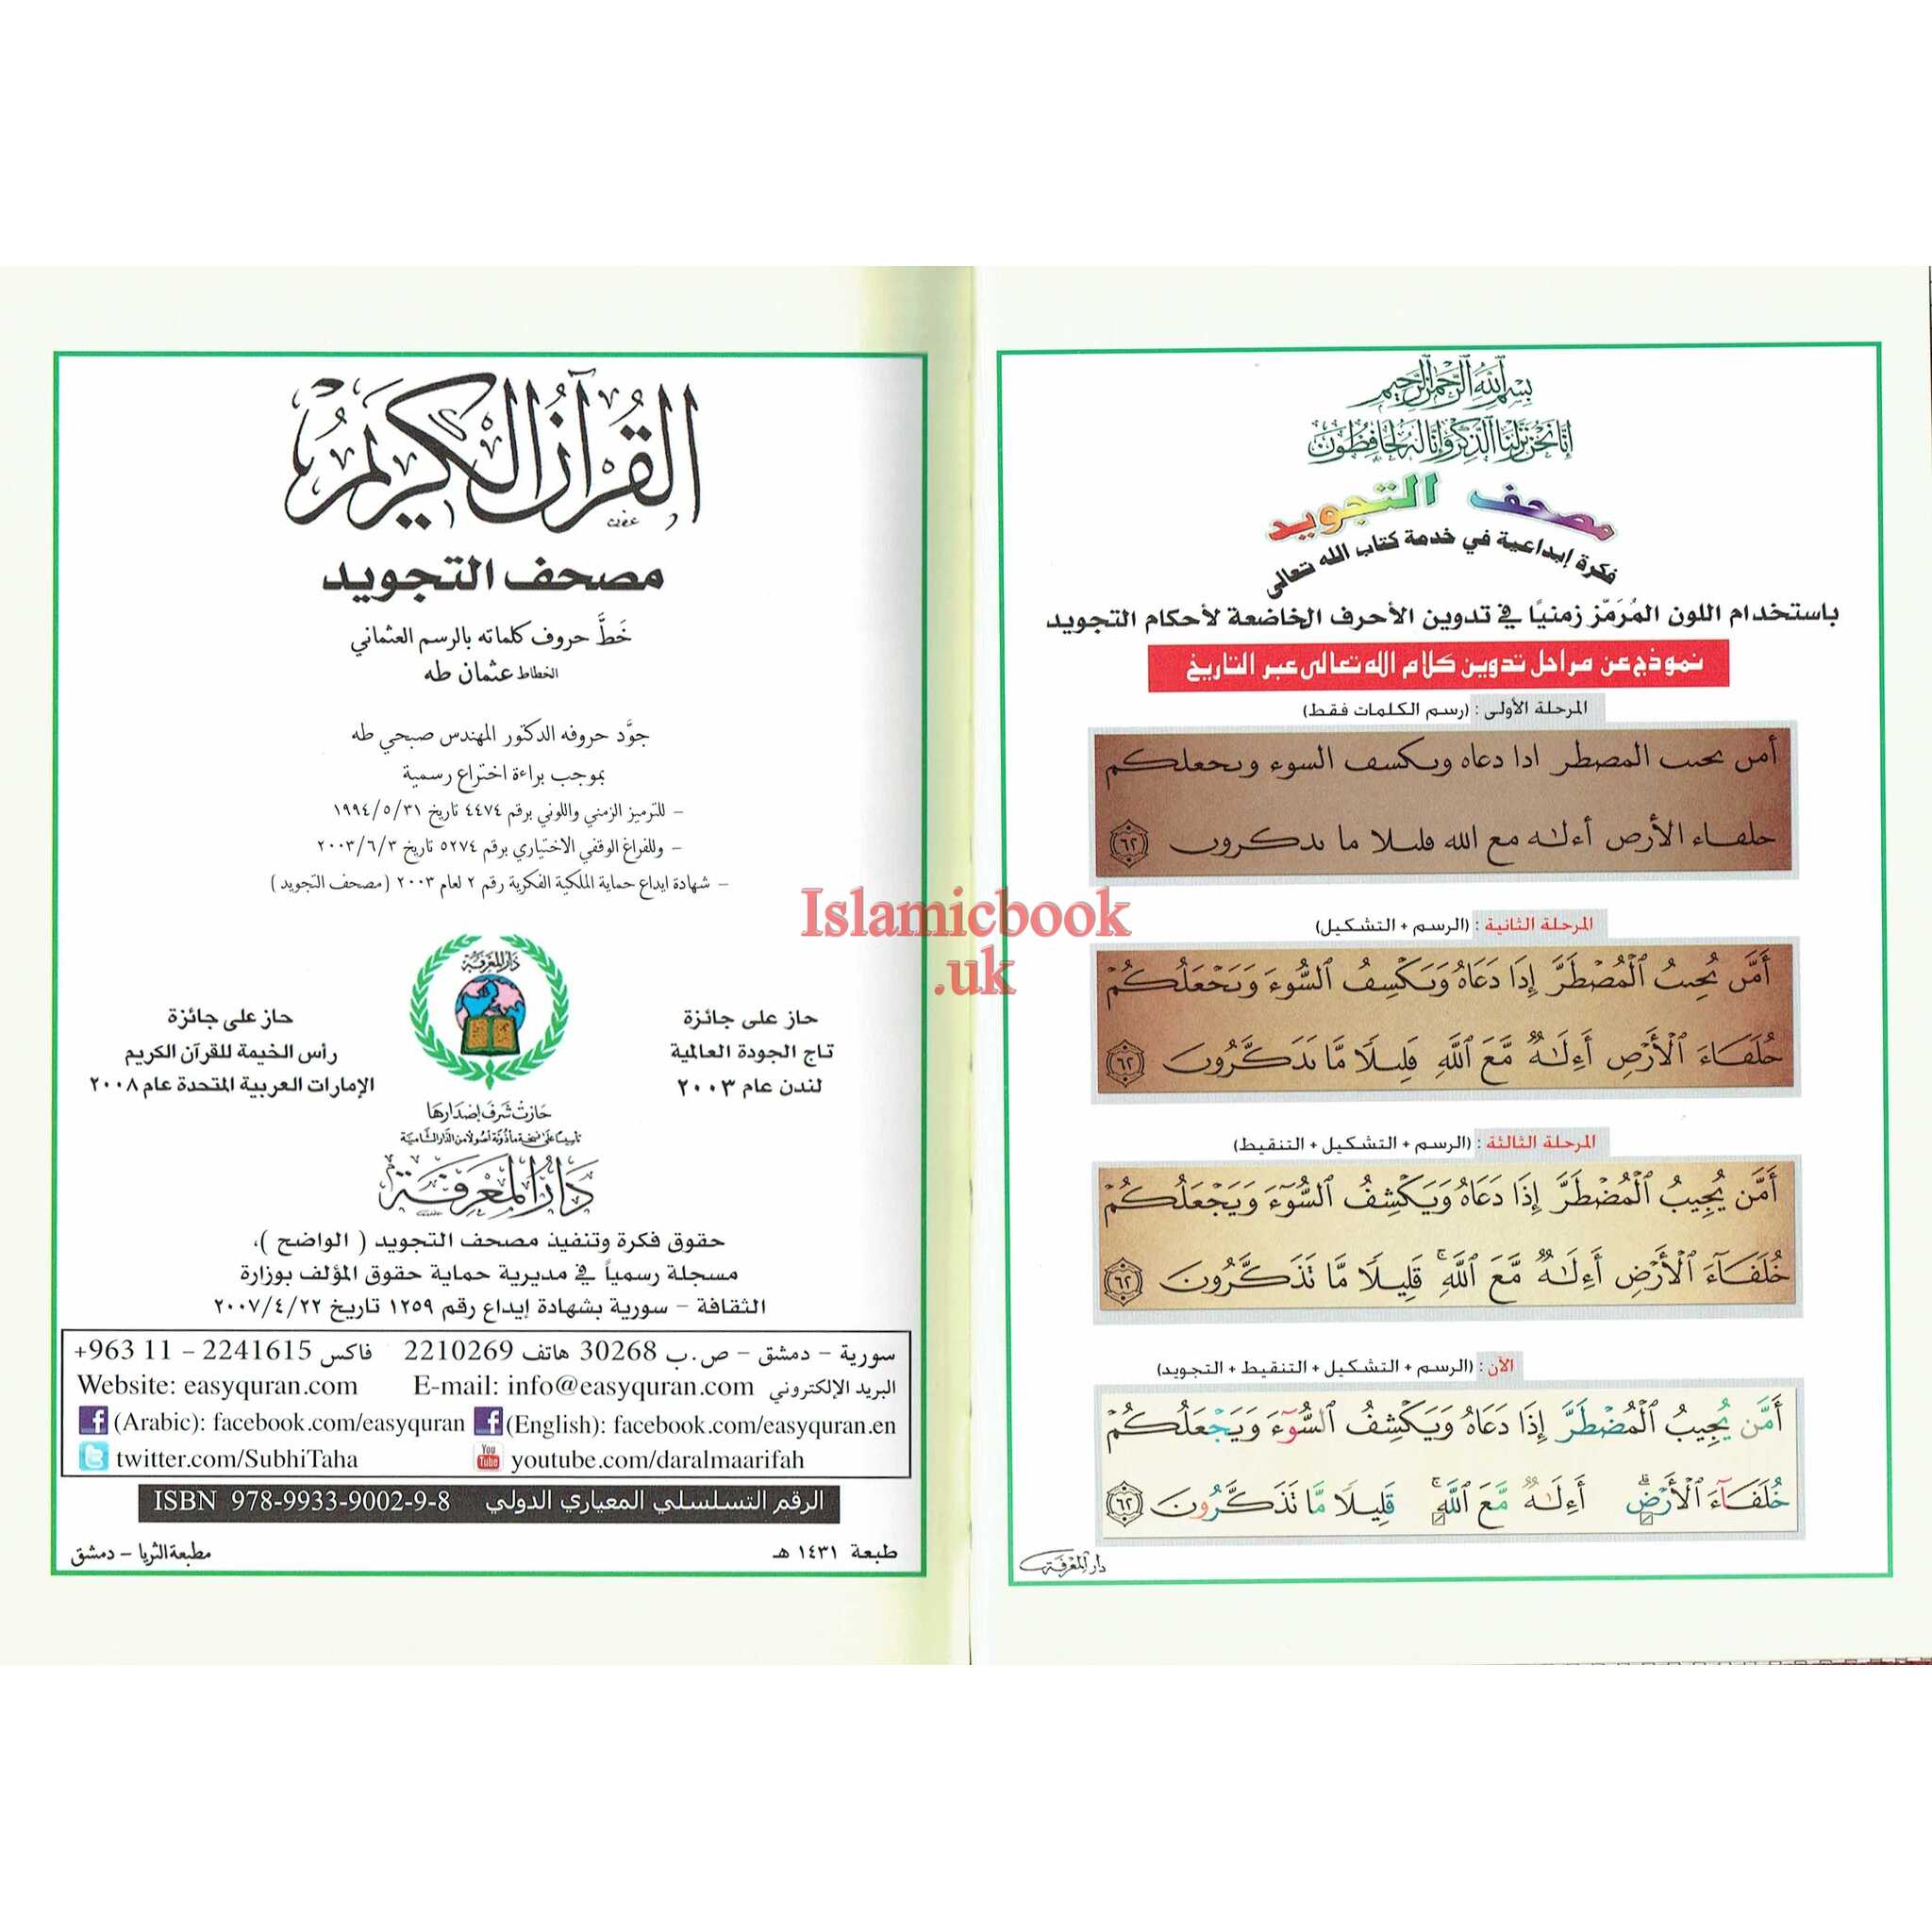 بسم الله الرحمن الرحيم
إنا نحن نزلنا الذكر وإنا له لحافظون
مصحف التجويد
فكرة إبداعية في خدمة كتاب الله تعالى
باستخدام اللون المُرَمّز زمنياً في تدوين الأحرف الخاضعة لأحكام التجويد
نموذج عن مراحل تدوين كلام الله تعالى عبر التاريخ
المرحلة الأولى : (رسم الكلمات فقط)
أمن ٮحٮٮ المصطر ادا دعاه وٮكسف السوء وٮحعلكم
حلفاء الأرص أءلٰه مع الله ڡلٮلا ما ٮدكروں ٦٢
المرحلة الثانية : (الرسم + التشكيل)
أَمَّن ٮُحِٮٮُ ٱلْمُصْطَرَّ إِدَا دَعَاهُ وَٮَكْسِفُ ٱلسُّوٓءَ وَٮَحْعَلُكُمْ
حُلَفَاءَ ٱلْأَرْصِ أَءِلَٰهٌ مَّعَ ٱللَّهِ ڡَلِٮلًا مَّا ٮَدَكَّرُوںَ ٦٢
المرحلة الثالثة : (الرسم + التشكيل + التنقيط)
أَمَّن يُجِيبُ ٱلْمُضْطَرَّ إِذَا دَعَاهُ وَيَكْشِفُ ٱلسُّوٓءَ وَيَجْعَلُكُمْ
خُلَفَآءَ ٱلْأَرْضِ أَءِلَٰهٌ مَّعَ ٱللَّهِ ۚ قَلِيلًا مَّا تَذَكَّرُونَ ٦٢
الآن : (الرسم + التشكيل + التنقيط + التجويد)
أَمَّن يُجِيبُ ٱلْمُضْطَرَّ إِذَا دَعَاهُ وَيَكْشِفُ ٱلسُّوٓءَ وَيَجْعَلُكُمْ
خُلَفَآءَ ٱلْأَرْضِ ۗ أَءِلَٰهٌ مَّعَ ٱللَّهِ ۚ قَلِيلًا مَّا تَذَكَّرُونَ ٦٢
دار المعرفة
القرآن الكريم
مصحف التجويد
خَطَّ حروف كلماته بالرسم العثماني
الخطاط عثمان طه
جوَّد حروفه الدكتور المهندس صبحي طه
بموجب براءة اختراع رسمية
– للترميز الزمني واللوني برقم ٤٤٧٤ تاريخ ١٩٩٤/٥/٣١
– وللفراغ الوقفي الاختياري برقم ٥٢٧٤ تاريخ ٢٠٠٣/٦/٣
– شهادة ايداع حماية الملكية الفكرية رقم ٢ لعام ٢٠٠٣ (مصحف التجويد)
دار المعرفة
حاز على جائزة
تاج الجودة العالمية
لندن عام ٢٠٠٣
حاز على جائزة
رأس الخيمة للقرآن الكريم
الإمارات العربية المتحدة عام ٢٠٠٨
حازت شرف إصدارها
تأسيساً على نسخة مأذونة أصولاً من الدار الشامية
دار المعرفة
حقوق فكرة وتنفيذ مصحف التجويد ( الواضح )،
مسجلة رسمياً في مديرية حماية حقوق المؤلف بوزارة
الثقافة – سورية بشهادة إيداع رقم ١٢٥٩ تاريخ ٢٠٠٧/٤/٢٢
سورية – دمشق – ص.ب 30268 هاتف 2210269 فاكس 2241615 – 11 963+
Website: easyquran.com E-mail: info@easyquran.com البريد الإلكتروني
(Arabic): facebook.com/easyquran (English): facebook.com/easyquran.en
twitter.com/SubhiTaha You Tube youtube.com/daralmaarifah
ISBN 978-9933-9002-9-8 الرقم التسلسلي المعياري الدولي
طبعة ١٤٣١ هـ
مطبعة الثريا – دمشق
Islamicbook
.uk